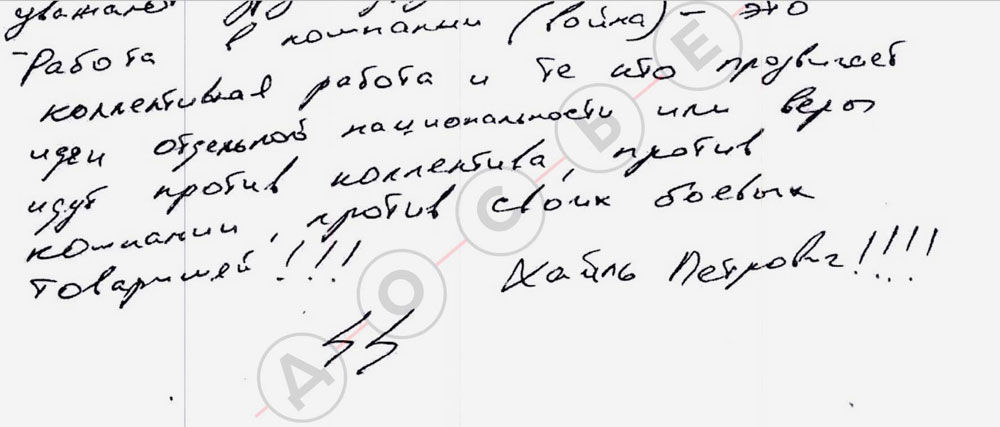 - Работа в компании (война) - это
коллективная работа и те кто продвигает
идеи отдельной национальности или веры
идут против коллектива, против
компании, против своих боевых
товарищей!!!
Хайль Петрович!!!!
ϟϟ
ДОСЬЕ